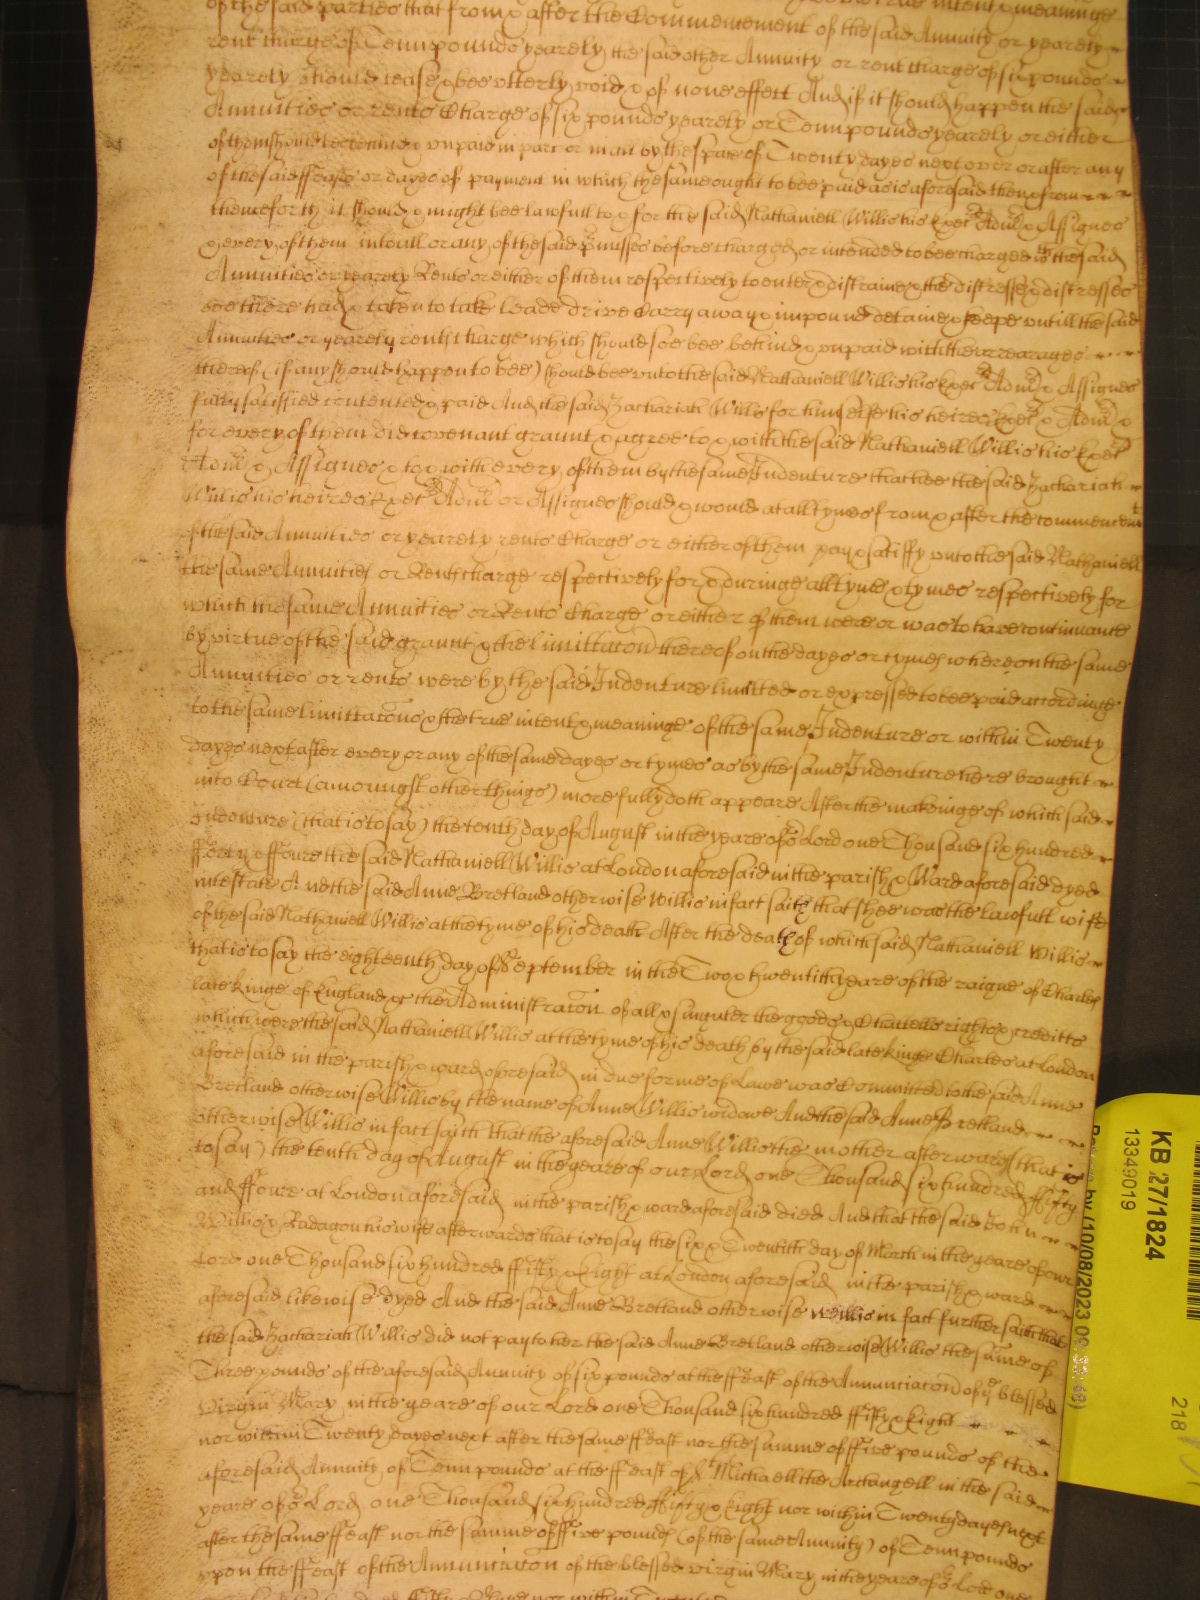 of the said parties that from & after the Commencement of the said Annuity or yearely
rent charge of Tenn pounds yearely the said other Annuity or rent charge of six pounds
yearely should cease & bee utterly void & of none effect And if it should happen the said
Annuities or rents Charge of six pounds yearely or Tenn pounds yearely or either
of them should bee behind & unpaid in part or in all by the space of Twenty dayes next over or after any
of the said ffeasts or dayes of payment in which the same ought to bee paid as is aforesaid then & from
thenceforth it should & might bee lawfull to & for the said Nathaniell Willis his Exec Adm & Assignes
& every of them into all or any of the said pmisses before charged or intended to bee charged wth the said
Annuities or yearely Rents or either of them respectively to enter & distraine & the distresse & distresses
soe there had & taken to take leade drive Carry away & impound detaine & keepe untill the said
Annuities or yearely rents Charge which should soe bee behind & unpaid with the arrearages
thereof (if any should happen to bee) should bee unto the said Nathaniell Willis his Exec Adm & Assignes
fully satisfied contented & paid And the said Zachariah Willis for himselfe his heires Exec & Adm &
for every of them did covenant graunt & agree to & with the said Nathaniell Willis his Exec
Adm & Assignes & to & with every of them by the same Indenture that hee the said Zachariah
Willis his heires Exec Adm or Assignes should & would at all tymes from & after the commencemt
of the said Annuities or yearely rents Charge or either of them pay & satisfy unto the said Nathaniell
the same Annuities or Rents charge respectively for & duringe all tyme & tymes respectively for
which the same Annuities or Rents Charge or either of them were or was to have continuance
by virtue of the said graunt & the limittacon thereof on the dayes or tymes whereon the same
Annuities or rents were by the said Indenture limitted or expressed to bee paid accordinge
to the same limittacons & the true intent & meaninge of the same Indenture or within Twenty
dayes next after every or any of the same dayes or tymes as by the same Indenture here brought
into Court (amoungst other things) more fully doth appeare After the makeinge of which said
Indenture (that is to say) the tenth day of August in the yeare of or Lord one Thousand six hundred
fforty & ffoure the said Nathaniell Willis at London aforesaid in the parish & Ward aforesaid dyed
intestate And the said Anne Bretland otherwise Willis in fact saith that shee was the lawfull wife
of the said Nathaniell Willis at the tyme of his death After the death of which said Nathaniell Willis
that is to say the eighteenth day of September in the Two & twentith yeare of the raigne of Charles
late kinge of England &c the Administracon of all & singuler the goods & Chattells rights & creditts
which were the said Nathaniell Willis at the tyme of his death by the said late kinge Charles at London
aforesaid in the parish & ward aforesaid in due forme of Lawe was Committed to the said Anne
Bretland otherwise Willis by the name of Anne Willis widowe And the said Anne Bretland
otherwise Willis in fact saith that the aforesaid Anne Willis the mother afterwards (that is
to say) the tenth day of August in the yeare of our Lord one Thousand six hundred ffifty
and ffoure at London aforesaid in the parish & ward aforesaid died And that the said John
Willis & Radagon his wife afterwards that is to say the six & Twentith day of March in the yeare of our
Lord one Thousand six hundred ffifty & Eight at London aforesaid in the parish & ward
aforesaid likewise dyed And the said Anne Bretland otherwise Willis in fact further saith that
the said Zachariah Willis did not pay to her the said Anne Bretland otherwise Willis the same of
Three pounds of the aforesaid Annuity of six pounds at the ffeast of the Annunciacon of ye blessed
Virgin Mary in the yeare of our Lord one Thousand six hundred ffifty & Eight
nor within Twenty dayes next after the same ffeast nor the summe of ffive pounds of the
aforesaid Annuity of Tenn pounds at the ffeast of St Michaell the Archangell in the said
yeare of or Lord one Thousand six hundred ffifty & Eight nor within Twenty dayes next
after the same ffeast nor the summe of ffive pounds (of the same Annuity) of Tenn pounds
upon the ffeast of the Annunciacon of the blessed virgin Mary in the yeare of or Lord one
KB 27/1824
13349019
by (10/08/2023
218